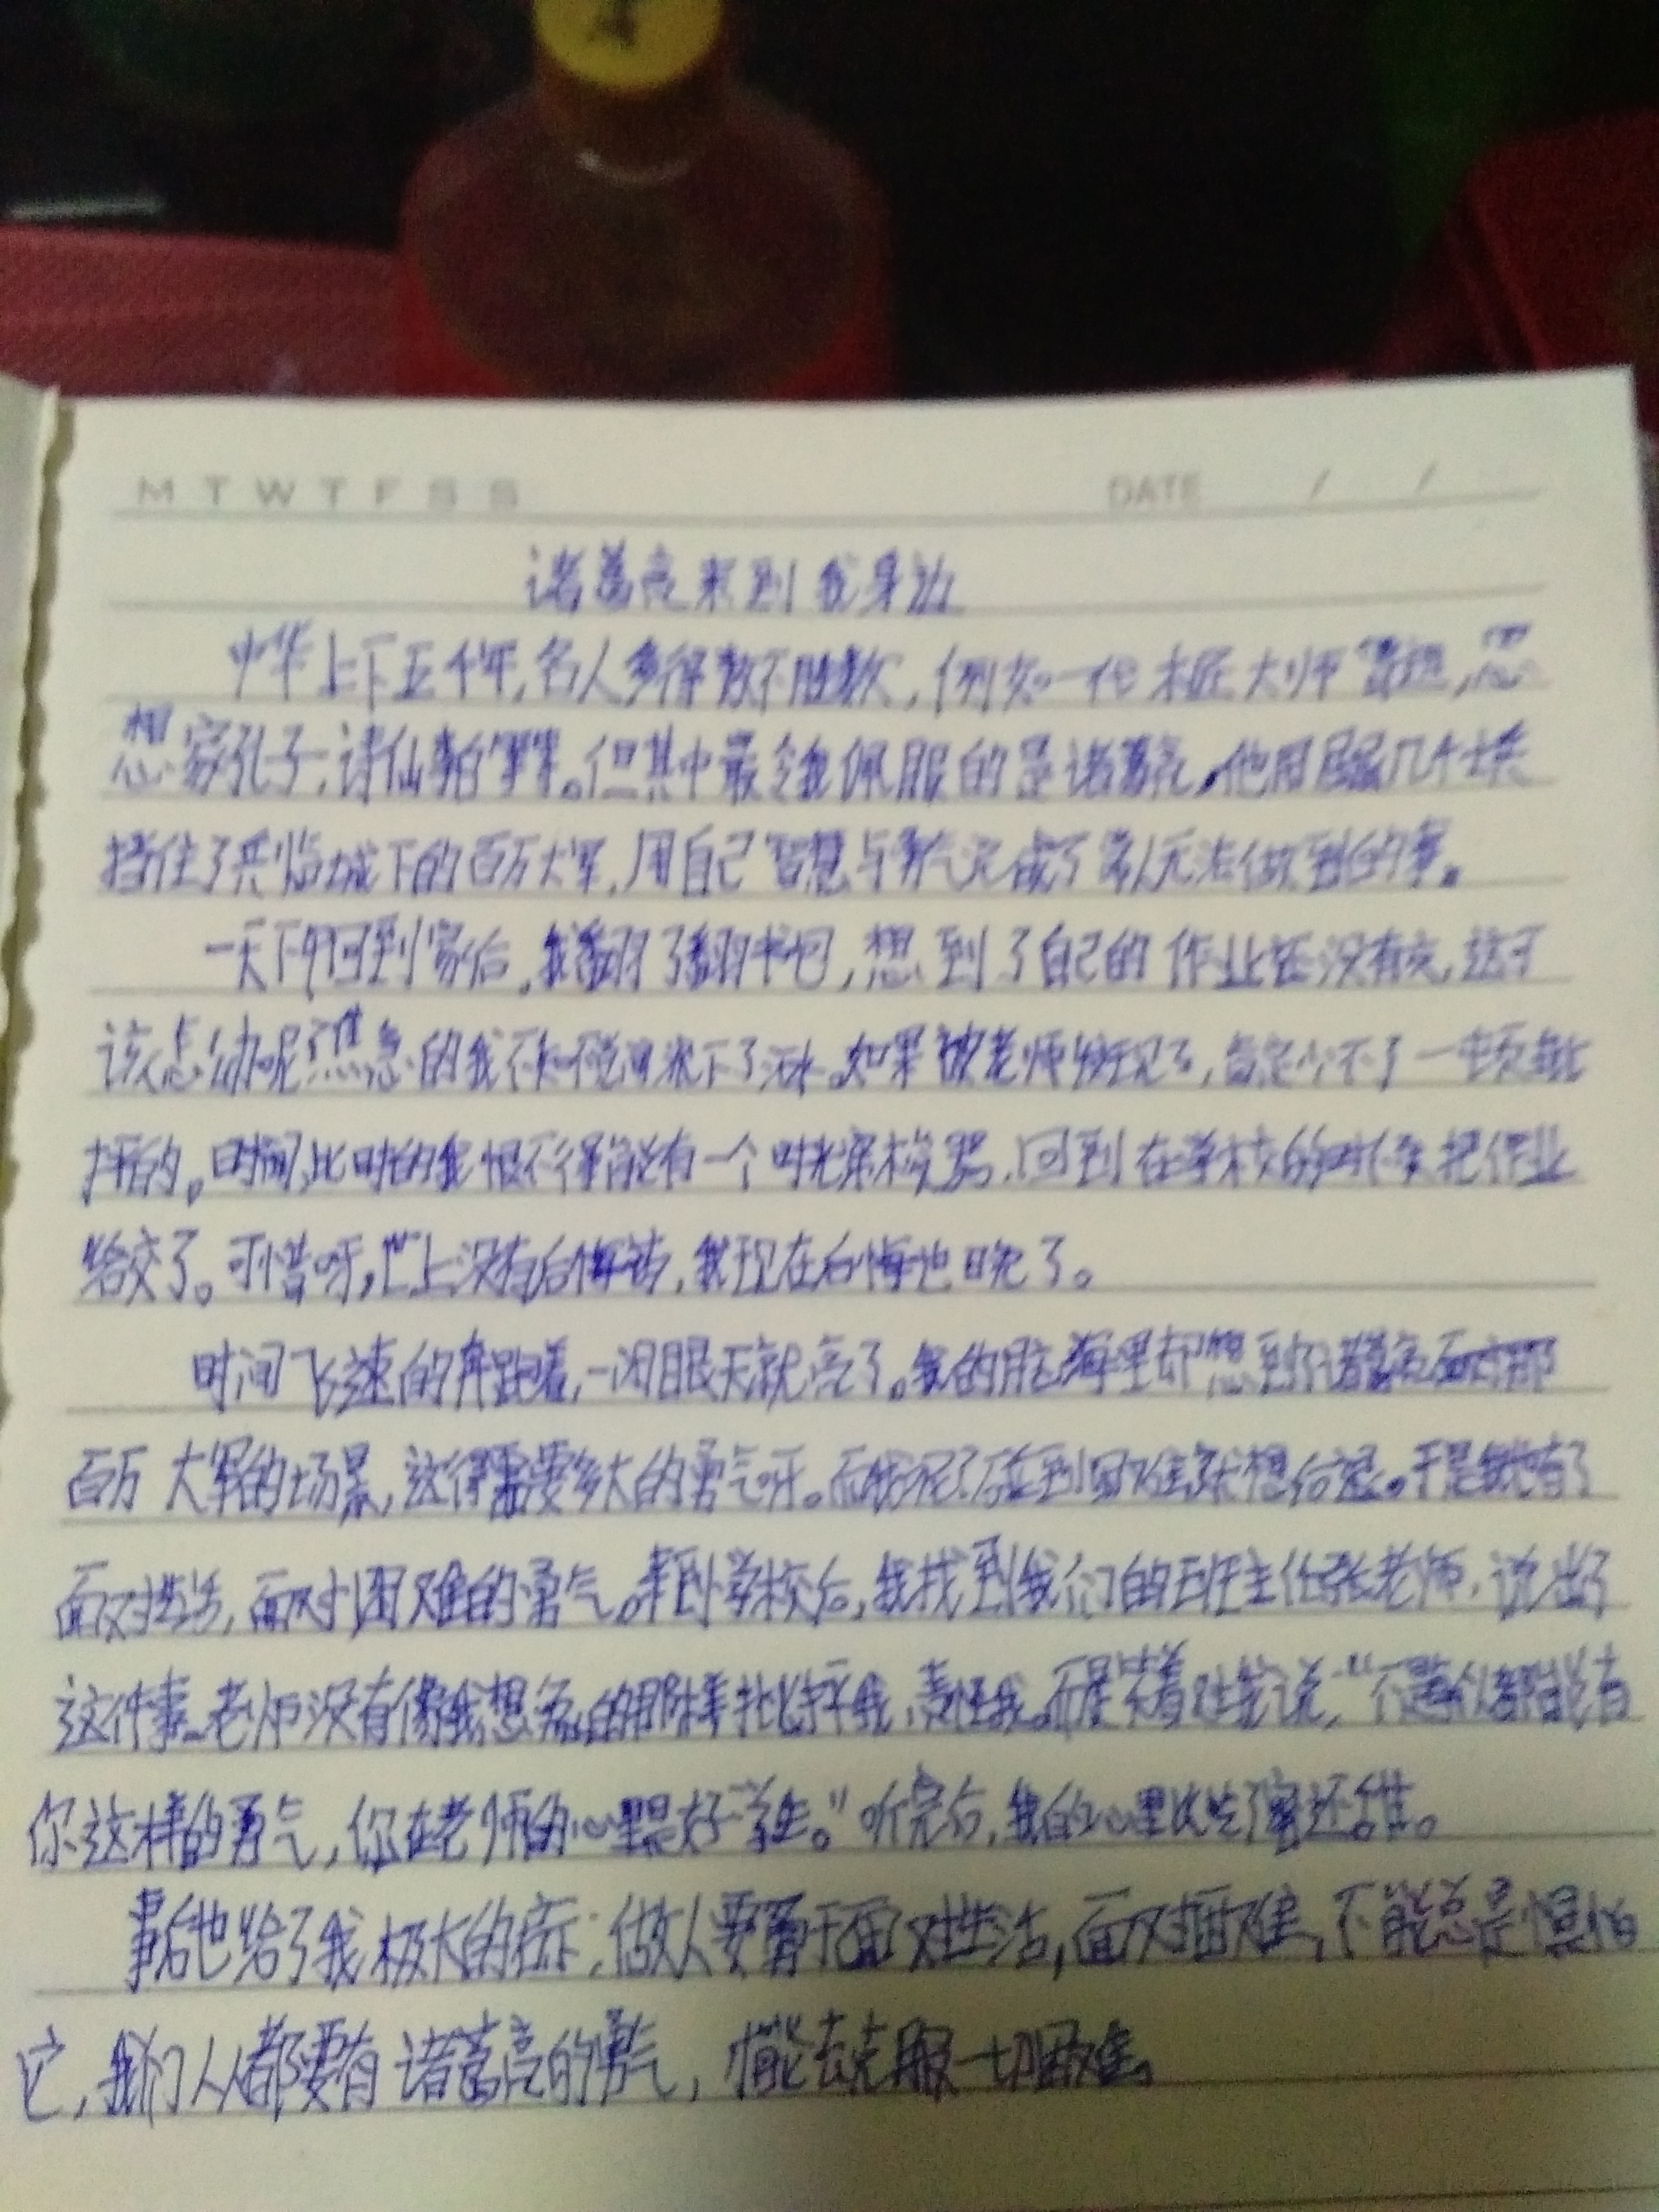 M T W T F S S DATE / /
诸葛亮来到我身边
中华上下五千年,名人多得数不胜数,例如一代木匠大师鲁班,思
想家孔子,诗仙李白等等。但其中最令我佩服的是诸葛亮,他用
挡住了兵临城下的百万大军,用自己智慧与勇气完成了常人无法做到的事。
一天下午回到家后,我翻了翻书包,想到了自己的作业还没有交,这可
该怎么办呢?焦急的我不知不觉间流下了汗水。如果被老师发现了,肯定少不了一顿批
评的。时间,此时的我恨不得能有一个时光穿梭器,回到在学校的时候把作业
给交了。可惜呀,世上没有后悔药,我现在后悔也晚了。
时间飞速的奔跑着,一闭眼天就亮了。我的脑海里却想到了诸葛亮面对那
百万大军的场景,这得需要多大的勇气呀。而我呢?碰到困难就想后退。于是我有了
面对生活,面对困难的勇气。来到学校后,我找到我们的班主任张老师,说出了
这件事。老师没有像我想象的那样批评我,责怪我。而是笑着对我说,“不是谁都能有
你这样的勇气,你在老师的心里是好学生。”听完后,我的心里比吃了蜜还甜。
事后也给了我极大的启示:做人要勇于面对生活,面对困难,不能总是惧怕
它,我们人人都要有诸葛亮的勇气,才能去克服一切困难。